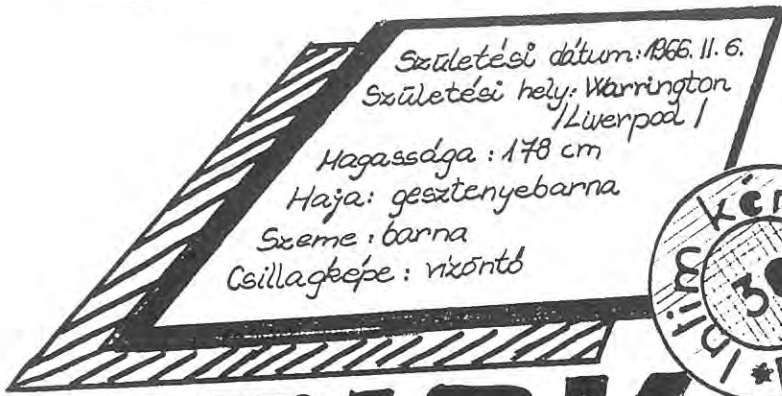 Születési dátum: 1966. II. 6.
Születési hely: Warrington
/Liverpool/
Magassága: 178 cm
Haja: gesztenyebarna
Szeme: barna
Csillagképe: vízöntő
Intim kér